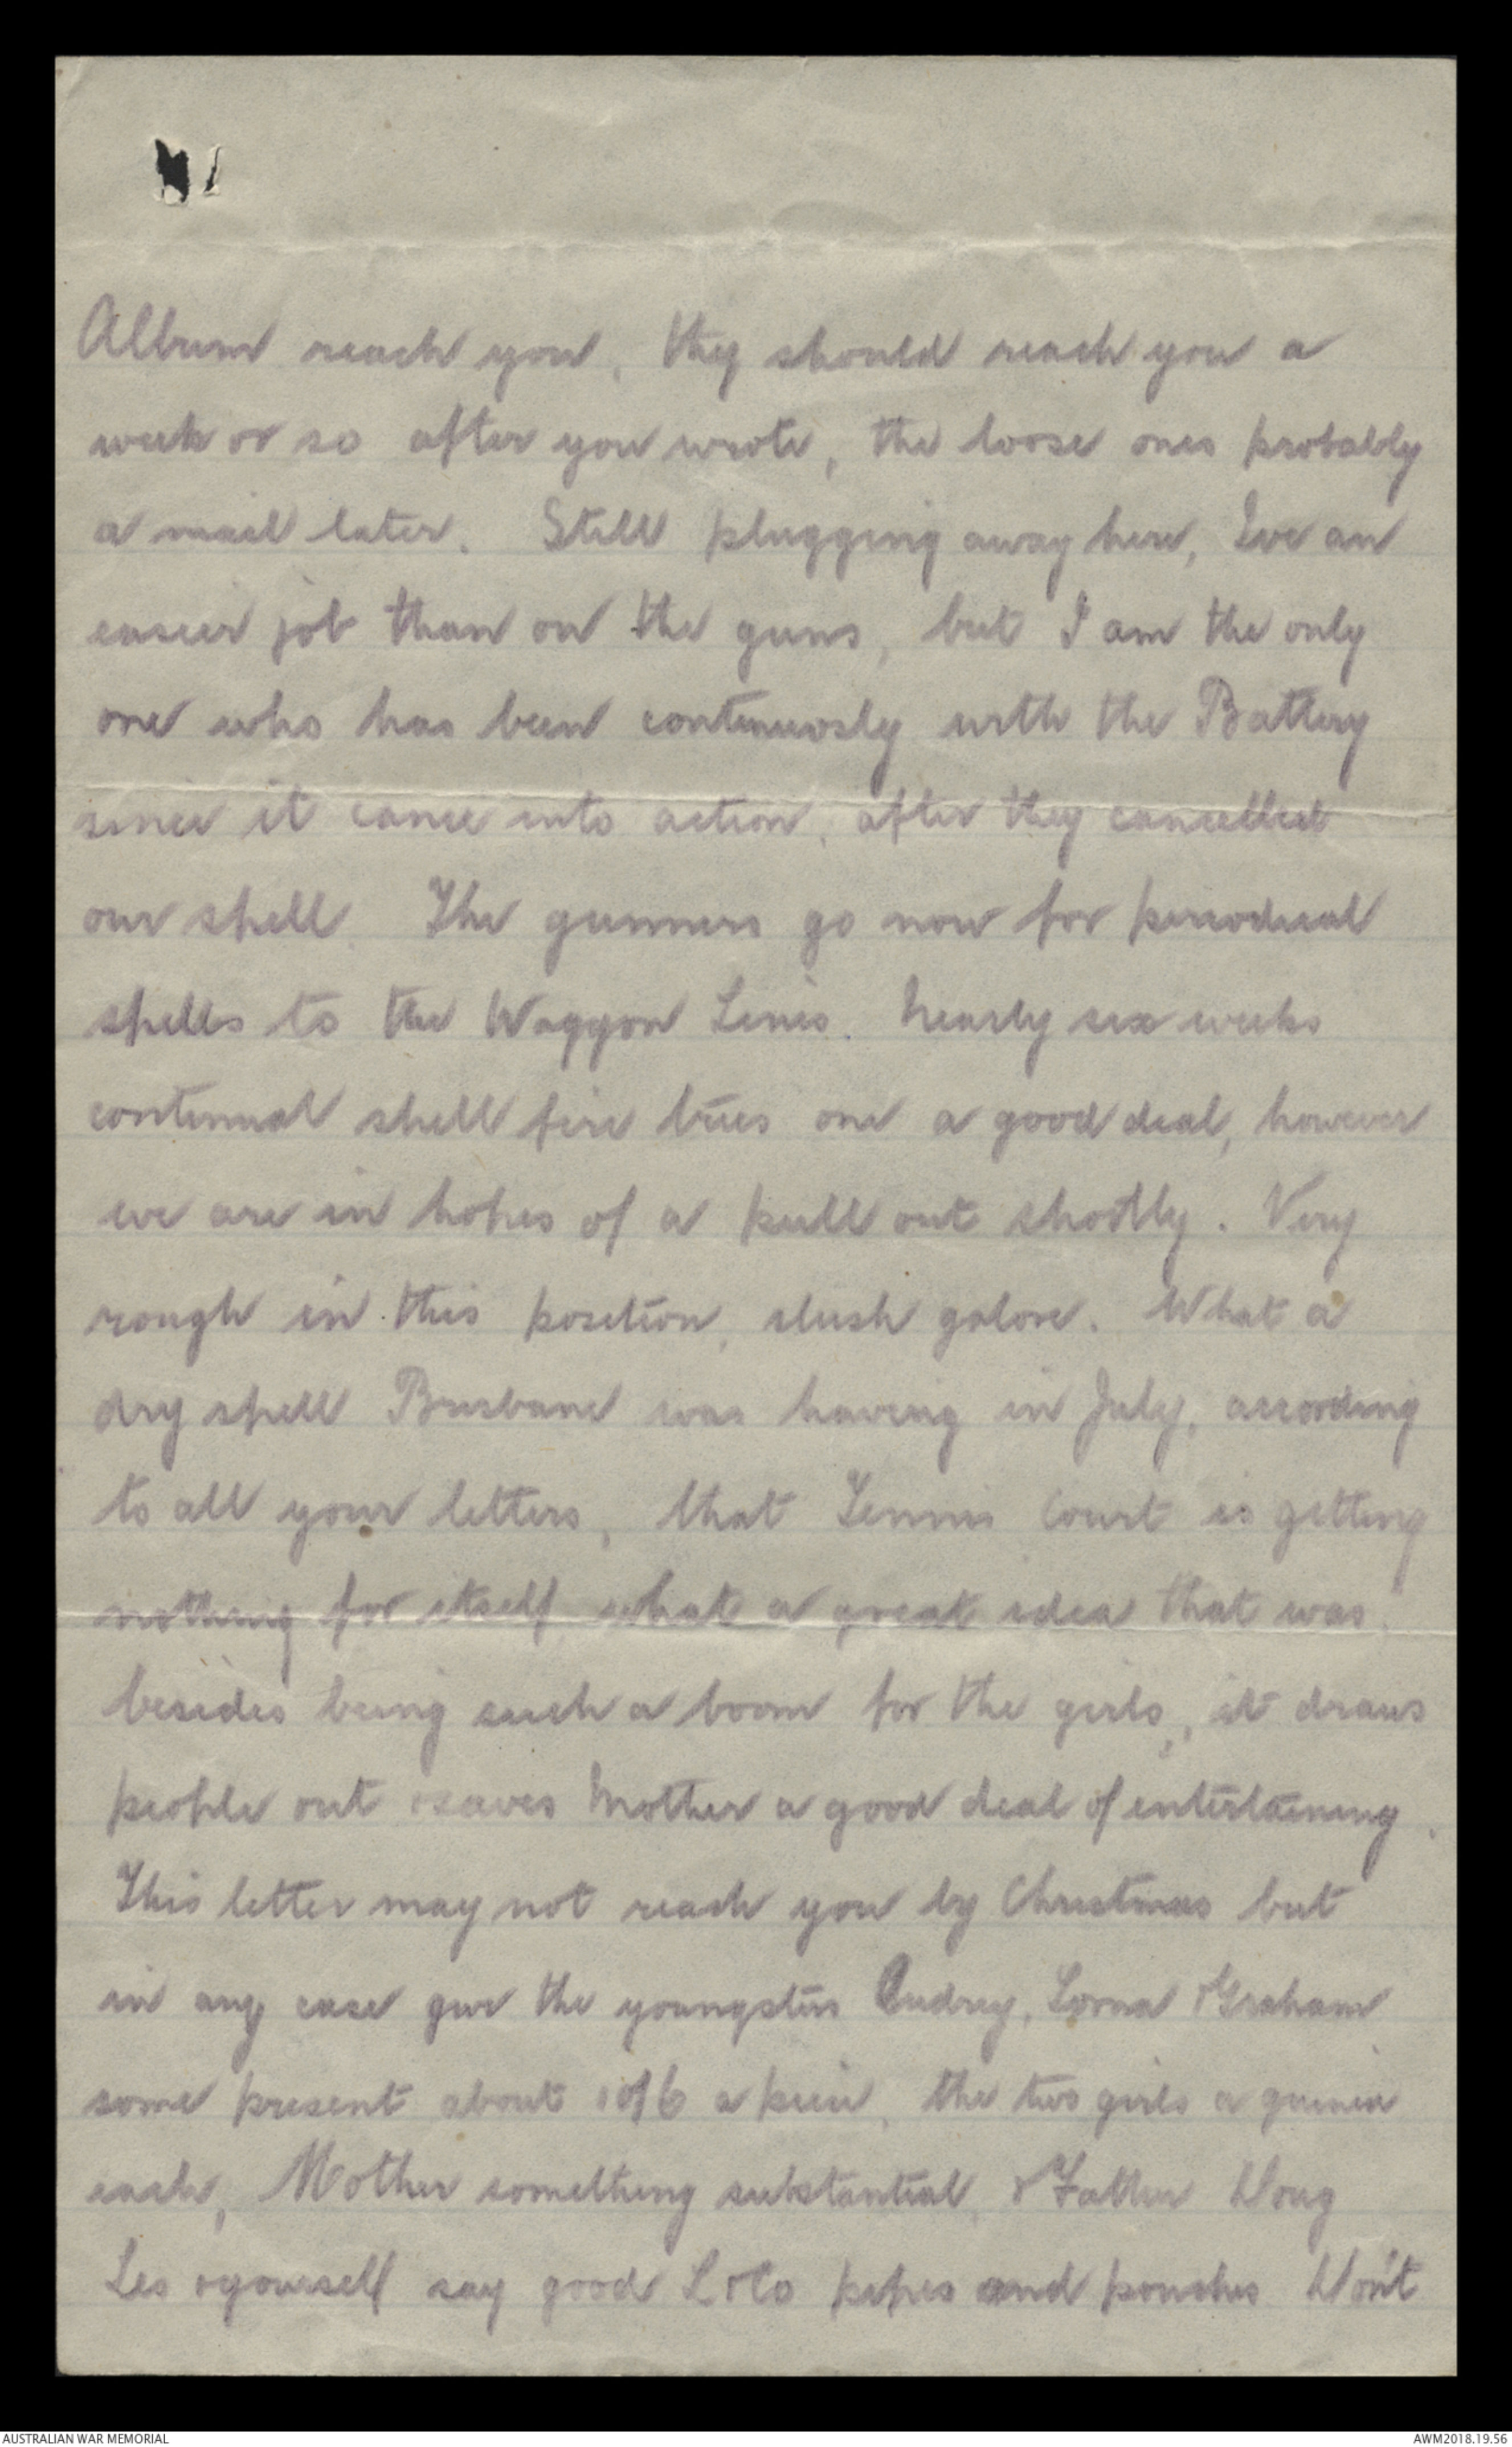 Album reach you, they should reach you a
week or so after you wrote, the loose ones probably
a mail later. Still plugging away here, Ive an
easier job than on the guns, but I am the only
one who has been continuosly with the Battery
since it came into action, after they cancelled
our spell. The gunners go now for periodical
spells to the Waggon Lines. Nearly six weeks
continual shell fire tries one a good deal, however
we are in hopes of a pull out shortly. Very
rough in this position, slush galore. What a
dry spell Brisbane was having in July, according
to all your letters, that Tennis Court is getting
nothing for itself, what a great idea that was,
besides being such a boom for the girls, it draws
people out & saves Mother a good deal of entertaining.
This letter may not reach you by Christmas but
in any case give the youngsters Audrey, Lorna & Graham
some present about 10/6 a piece, the two girls a guinea
each, Mother something substantial, & Father Doug
Les & yourself say good L & Co pipes and pouches Don't
AUSTRALIAN WAR MEMORIAL
AWM2018.19.56